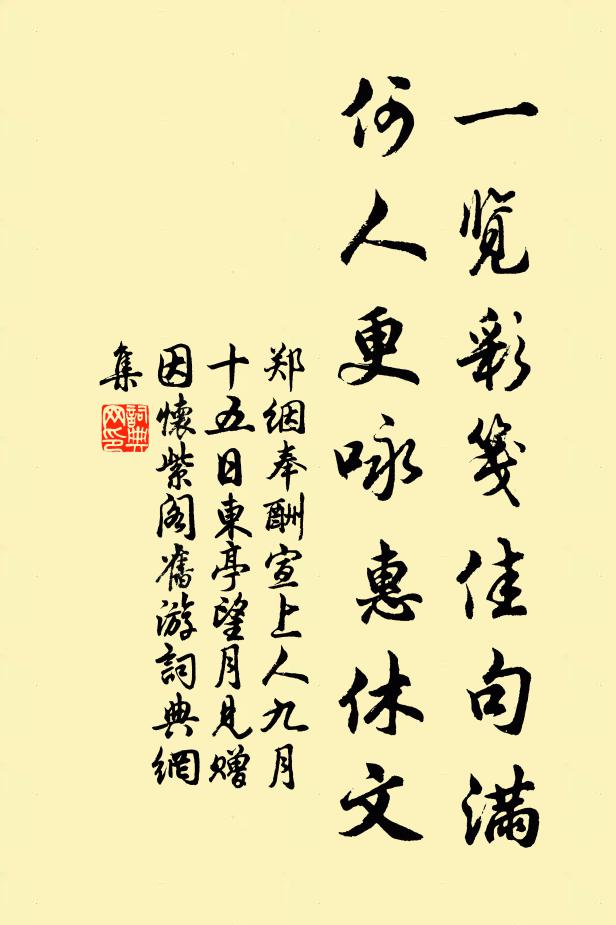 一览彩笺佳句满
何人更咏惠休文
郑絪奉酬宣上人九月
十五日東亭望月見赠
因懷紫阁舊游詞典網
集
詞典
网印